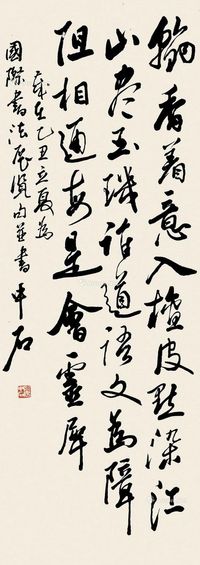 翰香着意入檀皮點染江
山尽玉璣誰道語文為障
阻相通每是會靈犀
歲在乙丑立夏為
國際書法展覽句並書 中石